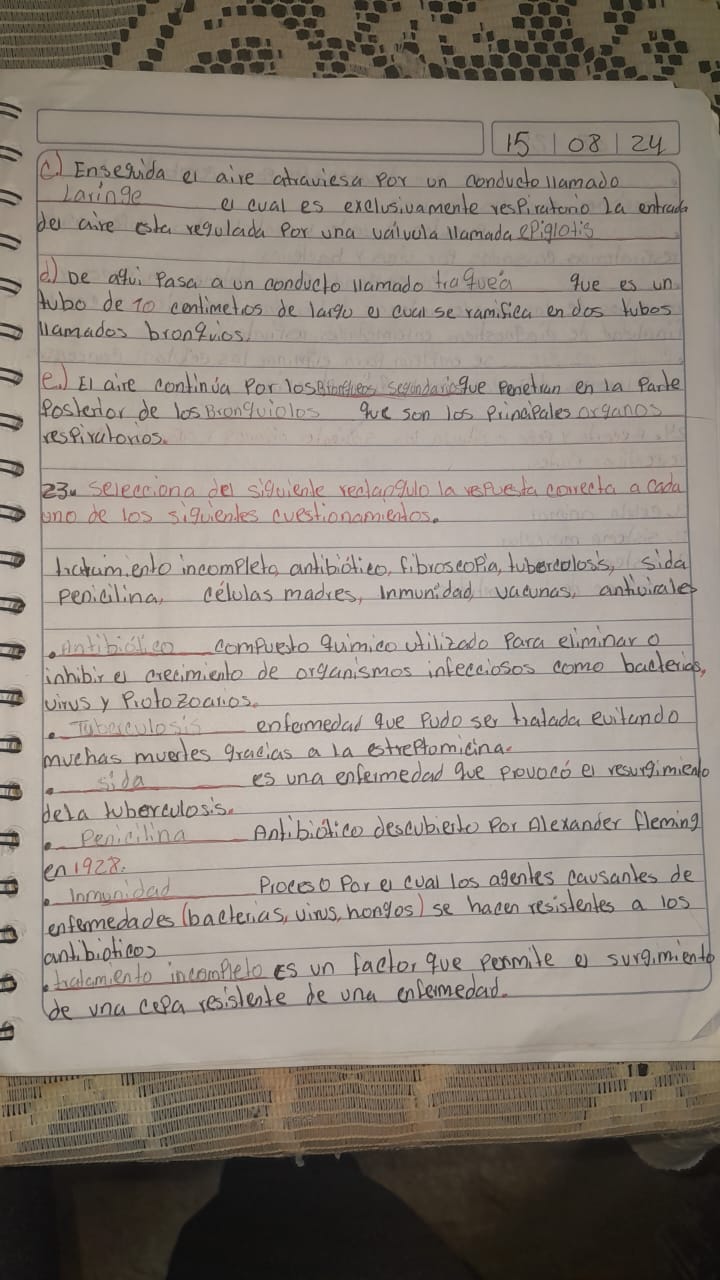 15 | 08 | 24
c.) Enseguida el aire atraviesa Por un conducto llamado
Laringe el cual es exclusivamente respiratorio La entrada
del aire esta regulada Por una válvula llamada epiglotis
d) De aqui Pasa a un conducto llamado traquea que es un
tubo de 10 centimetros de largo el cual se ramifica en dos tubos
llamados bronquios.
e.) El aire continúa Por los segundario que Penetran en la Parte
Posterior de los Bronquiolos que son los Principales organos
respiratorios.
23. Selecciona del siguiente rectangulo la respuesta correcta a cada
uno de los siguientes cuestionamientos.
tratamiento incompleto, antibiótico, fibroscopia, tuberculosis, sida
Penicilina, células madres, Inmunidad, vacunas, antivirales
. Antibiótico compuesto químico utilizado Para eliminar o
inhibir el crecimiento de organismos infecciosos como bacterias,
virus y Protozoarios.
. Tuberculosis enfermedad que Pudo ser tratada evitando
muchas muertes gracias a la estreptomicina.
. Sida es una enfermedad que provocó el resurgimiento
de la tuberculosis.
. Penicilina Antibiótico descubierto Por Alexander fleming
en 1928.
. Inmunidad Proceso Por el cual los agentes causantes de
enfermedades (bacterias, virus, hongos) se hacen resistentes a los
antibioticos
. tratamiento incompleto Es un factor que permite el surgimiento
de una cepa resistente de una enfermedad.